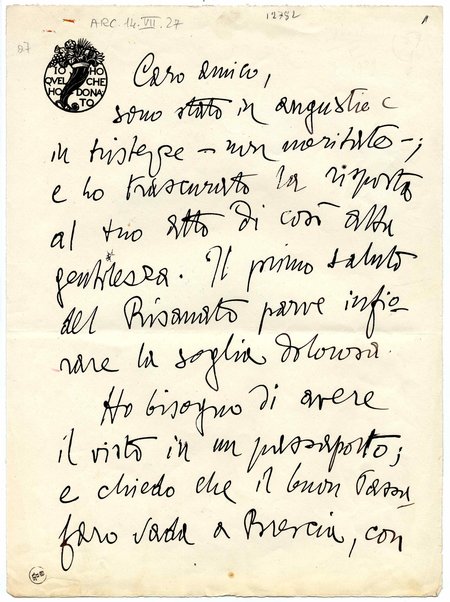 ARC. 14. VII. 27
12782
1
27
IO HO
QVEL CHE
HO DONA
TO
Caro amico,
sono stato in angustie e
in tristezze – non meritate –;
e ho trascurato la risposta
al tuo atto di così alta
gentilezza. Il primo saluto
del Risanato parve infio-
rare la soglia dolorosa.
Ho bisogno di avere
il visto in un passaporto;
e chiedo che il buon Passa
faro vada a Brescia, con